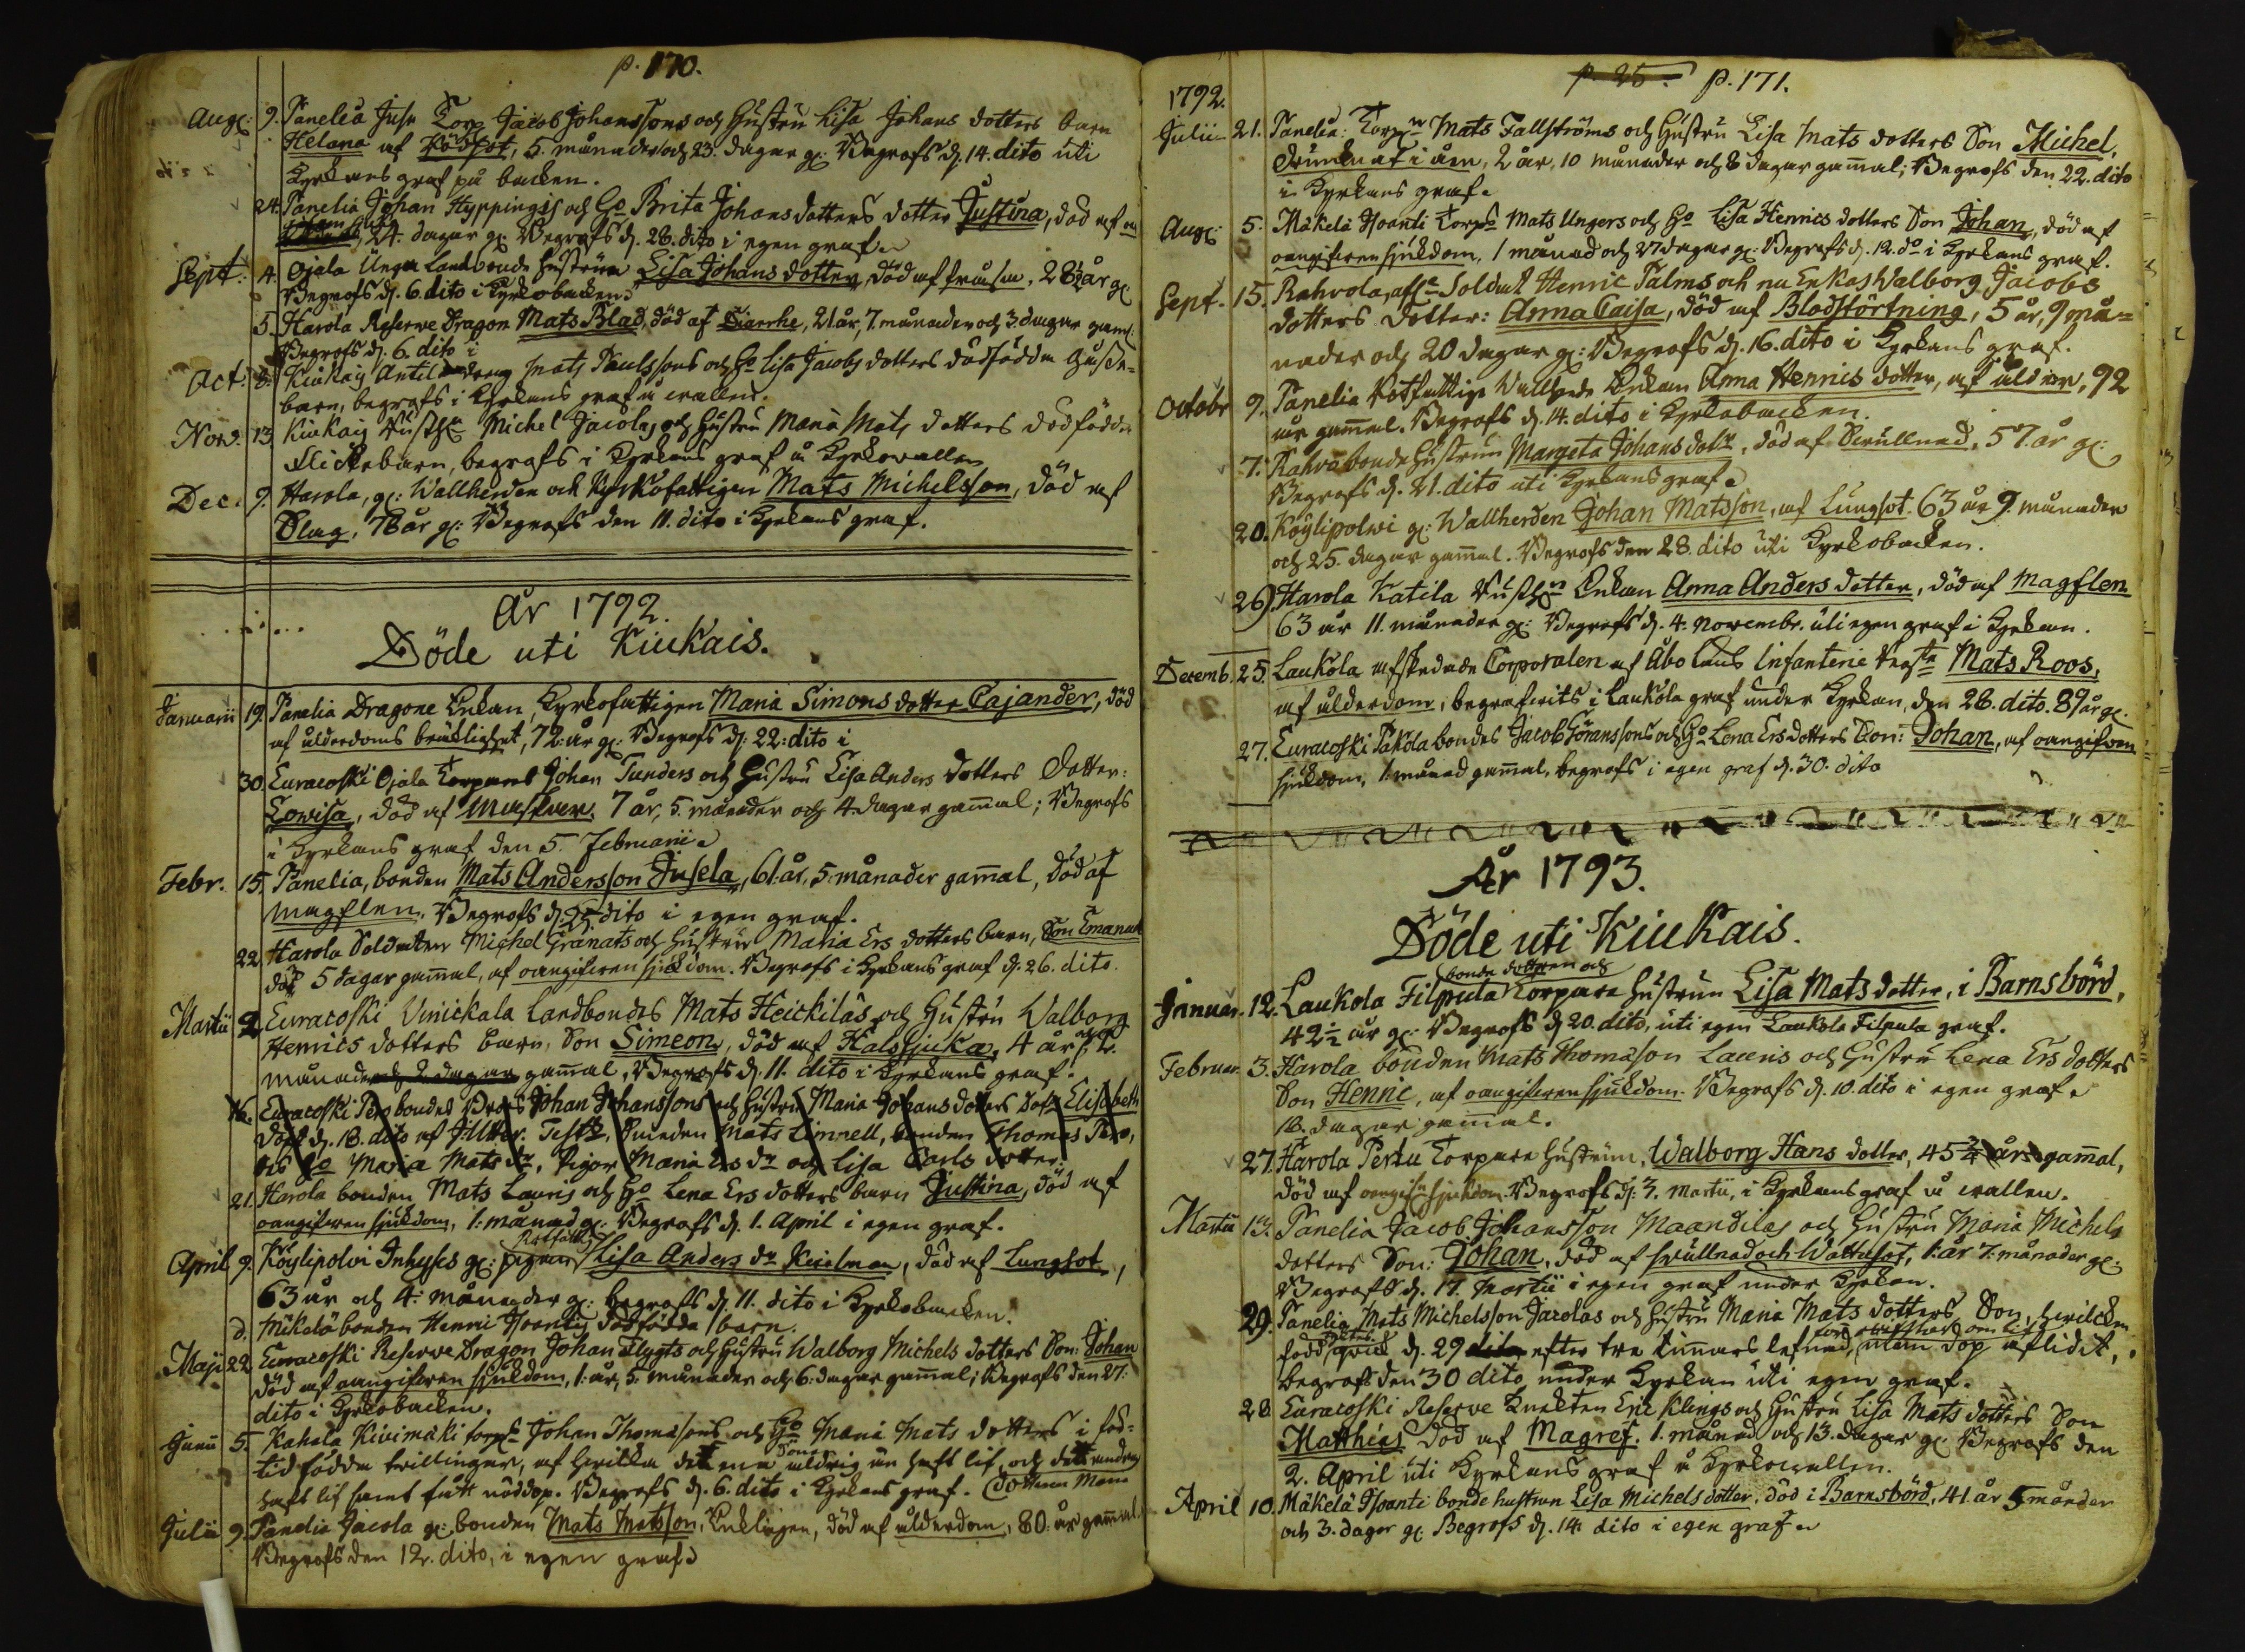 p. 170.
Aug: 9. Panelia Juse Torp Jacob Johanssons och hustru Lisa Johans dotters barn
Helena af Rödsot, 5. månader och 23. dagar g: Begrofs d. 14. dito uti
Kyrkans graf på backen.
24. Panelia Johan Hyppingis och Ho Brita Johans dotters dotter Justina, död af
24. dagar g: Begrofs d. 28. dito i egen graf.
Sept: 4. Ojala Unga Landbonde hustrun Lisa Johans dotter, död af 28½ år g:
Begrofs d. 6. dito i Kyrkobacken.
5. Harola Reserve Dragon Mats Blad, död af Diarrhe, 21 år, 7. månader och 3. dagar gam:
Begrofs d. 6. dito i
Oct: 8. Kiukais Antila dreng Mats Paulssons och Ho Lisa Jacobs dotters dödfödda
barn, begrofs i Kyrkans graf å wallen.
Nov: 13. Kiukais Michel Jacola, och hustru Maria Mats dotters dödfödda
flickebarn, begrofs i Kyrkans graf å Kyrkowallen
Dec. 9. Harola, g: Wallherden och Kyrkofattigen Mats Michelsson, död af
Slag, 78 år g: Begrofs den 11. dito i Kyrkans graf.
År 1792.
Döde uti Kiukais.
Januarii 19. Panelia Dragone Enkan, Kyrkofattigen Maria Simons dotter Cajander, död
af ålderdoms bräcklighet, 72. år g: Begrofs d: 22: dito i
30. Euracoski Ojala Torparens Johan Tunders och Hustru Lisa Anders dotters Dotter:
Lowisa, död af Messlingar, 7 år, 5. månader och 4. dagar gamal; Begrofs
i Kyrkans graf den 5. Februarii
Febr. 15. Panelia, bonden Mats Andersson Jusela, 61. år, 5. månader gamal, död af
Magplen, Begrofs d. dito i egen graf.
22. Harola Soldaten Michel Granats och Hustru Maria Ers dotters barn, Son Emanuel
död 5 dagar gamal, af oangifwen sjukdom. Begrofs i Kyrkans graf d. 26. dito.
Martii 2. Euracoski Winickala Landbondes Mats Heickilas och Hustru Walborg
Henrics dotters barn, Son Simeon, död af Halssjuka, 4 år,
månader och 2 dagar gamal, Begrofs d. 11. dito i Kyrkans graf.
16. Euracoski Pers bondes Johan Johanssons och hustru Maria Johans dotters Elisabeth
döpt d. 18. dito af Test: Smeden Mats Linnell, bonden Thomas
Ho Maria Mats dr, Pigor Maria Ers dr och Lisa Carls dotter.
21. Harola bonden Mats Lauris och Ho Lena Ers dotters barn Justina, död af
oangifwen sjukdom, 1. månad g: Begrofs d. 1. April i egen graf.
April 9. Köylipolvi Inhyses g: pigan Rotfattig Lisa Anders dr, död af Lungsot,
63 år och 4. månader g: begrofs d. 11. dito i Kyrkobacken.
d. Mäkelä bonden Henric Isoantis dödfödda barn.
Maji 22. Euracoski Reserve Dragon Johan Flygts och hustru Walborg Michels dotters Son: Johan
död af oangifwen sjukdom, 1. år, 5. månader och 6. dagar gamal; Begrofs den 27.
dito i Kyrkobacken.
Junii 5. Kahala Kivimäki torp: Johan Thomassons och Ho Maria Mats dotters i för-
tid födda twillingar, af hwilka det ena Sonen aldrig än haft lif, och det andra
haft lif samt fått nöddop. Begrofs d. 6. dito i Kyrkans graf. Dottren Maria
Julii 9. Panelia Jacola g: bonden Mats Matsson, Enklingen, död af ålderdom, 80. år gamal.
Begrofs den 12. dito, i egen graf
p. 25. p. 171.
1792.
Julii 21. Panelia: Torp: Mats Fallströms och Hustru Lisa Mats dotters Son Michel,
drunknat i åen, 2 år, 10 månader och 8 dagar gamal; Begrofs den 22. dito
i Kyrkans graf.
Aug: 5. Mäkelä Isoanti Torp: Mats Ungers och Ho Lisa Henrics dotters Son Johan, död af
oangifwen sjukdom, 1 månad och 27 dagar g: Begrofs d. 12. do i Kyrkans graf.
Sept. 15. Rahvola, Soldat Henric Palms och nu Enkas Walborg Jacobs
dotters dotter: Anna Caisa, död af Blodstörtning, 5 år, 9 må-
nader och 20 dagar g: Begrofs d. 16. dito i Kyrkans graf.
Octobr 9. Panelia Rotfattige Wallhjons Enkan Anna Henrics dotter, af ålder, 92
år gamal. Begrofs d. 14. dito i Kyrkobacken.
7. Rahvo bonde hustrun Margeta Johans dotr, död af Swullnad, 57. år g:
Begrofs d. 21. dito uti Kyrkans graf
20. Köylipolwi g: Wallherden Johan Matsson, af Lungsot. 63 år 9. månader
och 25. dagar gamal. Begrofs den 28. dito uti Kyrkobacken.
26. Harola Katila Enkan Anna Anders dotter, död af Magplen
63 år 11. månader g: Begrofs d. 4. Novembr. uti egen graf i Kyrkan.
Decemb. 25. Laukola afskedade Corporalen af Åbo Läns Infanterie Mats Roos,
af ålderdom, begrafwits i Laukola graf under Kyrkan, den 28. dito. 89 år g.
27. Euracoski Pakola bondes Jacob Göranssons och Ho Lena Ers dotters Son: Johan, af oangifwen
sjukdom, 1. månad gamal, begrofs i egen graf d. 30. dito
År 1793.
Döde uti Kiukais.
bonde dottren och
Januar. 12. Laukola Filpula Torpare hustrun Lisa Mats dotter, i Barnsbörd,
42½ år g: Begrofs d 20. dito, uti egen Laukola Filpula graf.
Februar. 3. Harola bonden Mats Thomasson Lauris och Hustru Lena Ers dotters
Son Henric, af oangifwen sjukdom. Begrofs d. 10. dito i egen graf.
16. dagar gamal.
27. Harola Pertu Torpare hustrun, Walborg Hans dotter, 45¾ år gamal,
död af oangifn sjukdom. Begrofs d: 3. Martii, i Kyrkans graf å wallen.
Martii 13. Panelia Jacob Johansson Maandilas och hustru Maria Michels
dotters Son: Johan, död af swullnad och Wattusot, 1. år 7. månader g:
Begrofs d. 17. Martii i egen graf under Kyrkan.
29. Panelia Mats Michelsson Jacolas och hustru Maria Mats dotters Son, hwilcken
född d. 29 dito efter tre timmars lefnad, utan dop aflidit,
begrofs den 30 dito under Kyrkan uti egen graf.
28. Euracoski Reserve Knekten Eric Klings och hustru Lisa Mats dotters Son
Matthias död af Magref. 1. månad och 13. dagar g: Begrofs den
2. April uti Kyrkans graf å Kyrkowallen.
April 10. Mäkelä Isoanti bonde hustrun Lisa Michels dotter, död i Barnsbörd, 41 år 5 månader
och 3. dagar g: Begrofs d. 14. dito i egen graf